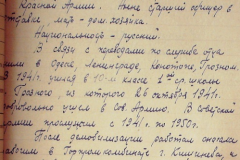 Красной Армии. Ныне старший офицер в
отставке, мать - дом. хозяйка.
Национальность - русский.
В связи с переводами по службе отца
жили в Орске, Ленинграде, Конотопе, Грозном.
В 1941 г. учился в 10-м классе 2ой ср. школы
Грозного, из которого 26 октября 1941 г.
добровольно ушел в Сов. Армию. В Советской
Армии прослужил с 1941 по 1950 г.
После демобилизации работал сначала
рабочим в г. Кишиневе,